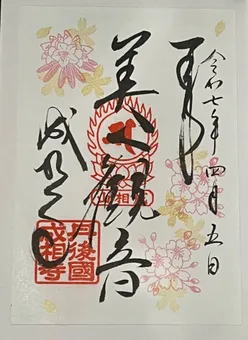 令和七年四月五日
奉拝
美人観音
成相寺
丹後國
成相寺